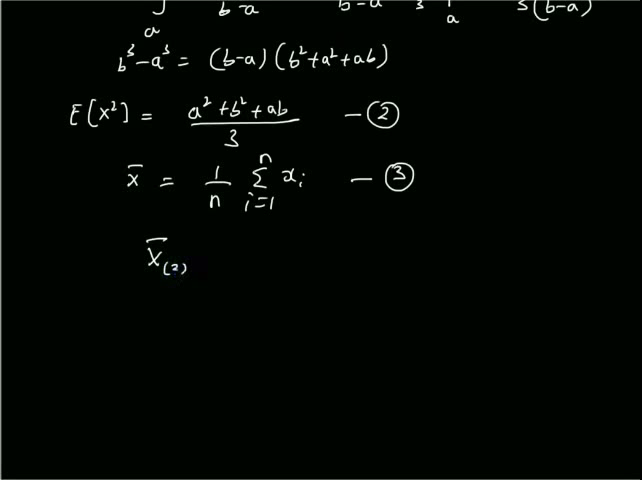 a b-a b-a 3 a 3(b-a)
b³-a³ = (b-a) (b²+a²+ab)
E[X²] = a²+b²+ab / 3 - ②
x̄ = 1/n n Σ i=1 xᵢ - ③
X̄₍₂₎